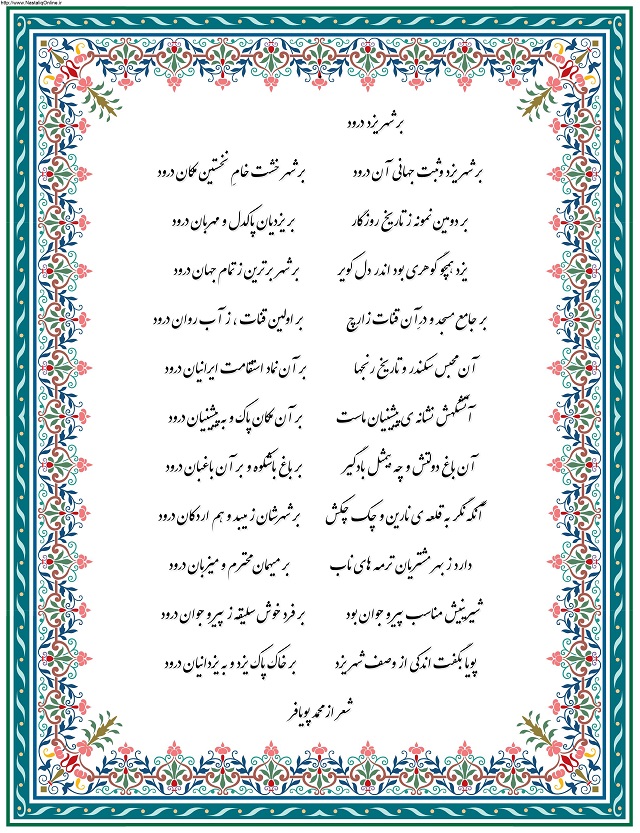 http://www.NastaliqOnline.ir
بر شهر یزد درود
بر شهر یزد و ثبت جهانی آن درود بر شهر خشت خامِ نخستین مکان درود
بر دومین نمونه ز تاریخ روزگار بر یزدیان پاکدل و مهربان درود
یزد همچو گوهری بود اندر دل کویر بر شهر برترین ز تمام جهان درود
بر جامع مسجد و در آن قنات زارچ بر اولین قنات ، ز آب روان درود
آن محبس سکندر و تاریخ رنجها بر آن نماد استقامت ایرانیان درود
آتشکهش نشانه ی پیشینیان ماست بر آن مکان پاک و به پیشینیان درود
آن باغ دولتش و چه بیمثل بادگیر بر باغ باشکوه و بر آن باغبان درود
آنگه نگر به قلعه ی نارین و چک چکش بر شهرشان ز میبد و هم اردکان درود
دارد ز بهر مشتریان ترمه های ناب بر میهمان محترم و میزبان درود
شیرینیش مناسب پیر و جوان بود بر فرد خوش سلیقه ز پیر و جوان درود
پویا بگفت اندکی از وصف شهر یزد بر خاک پاک یزد و به یزدانیان درود
شعر از محمد پویافر